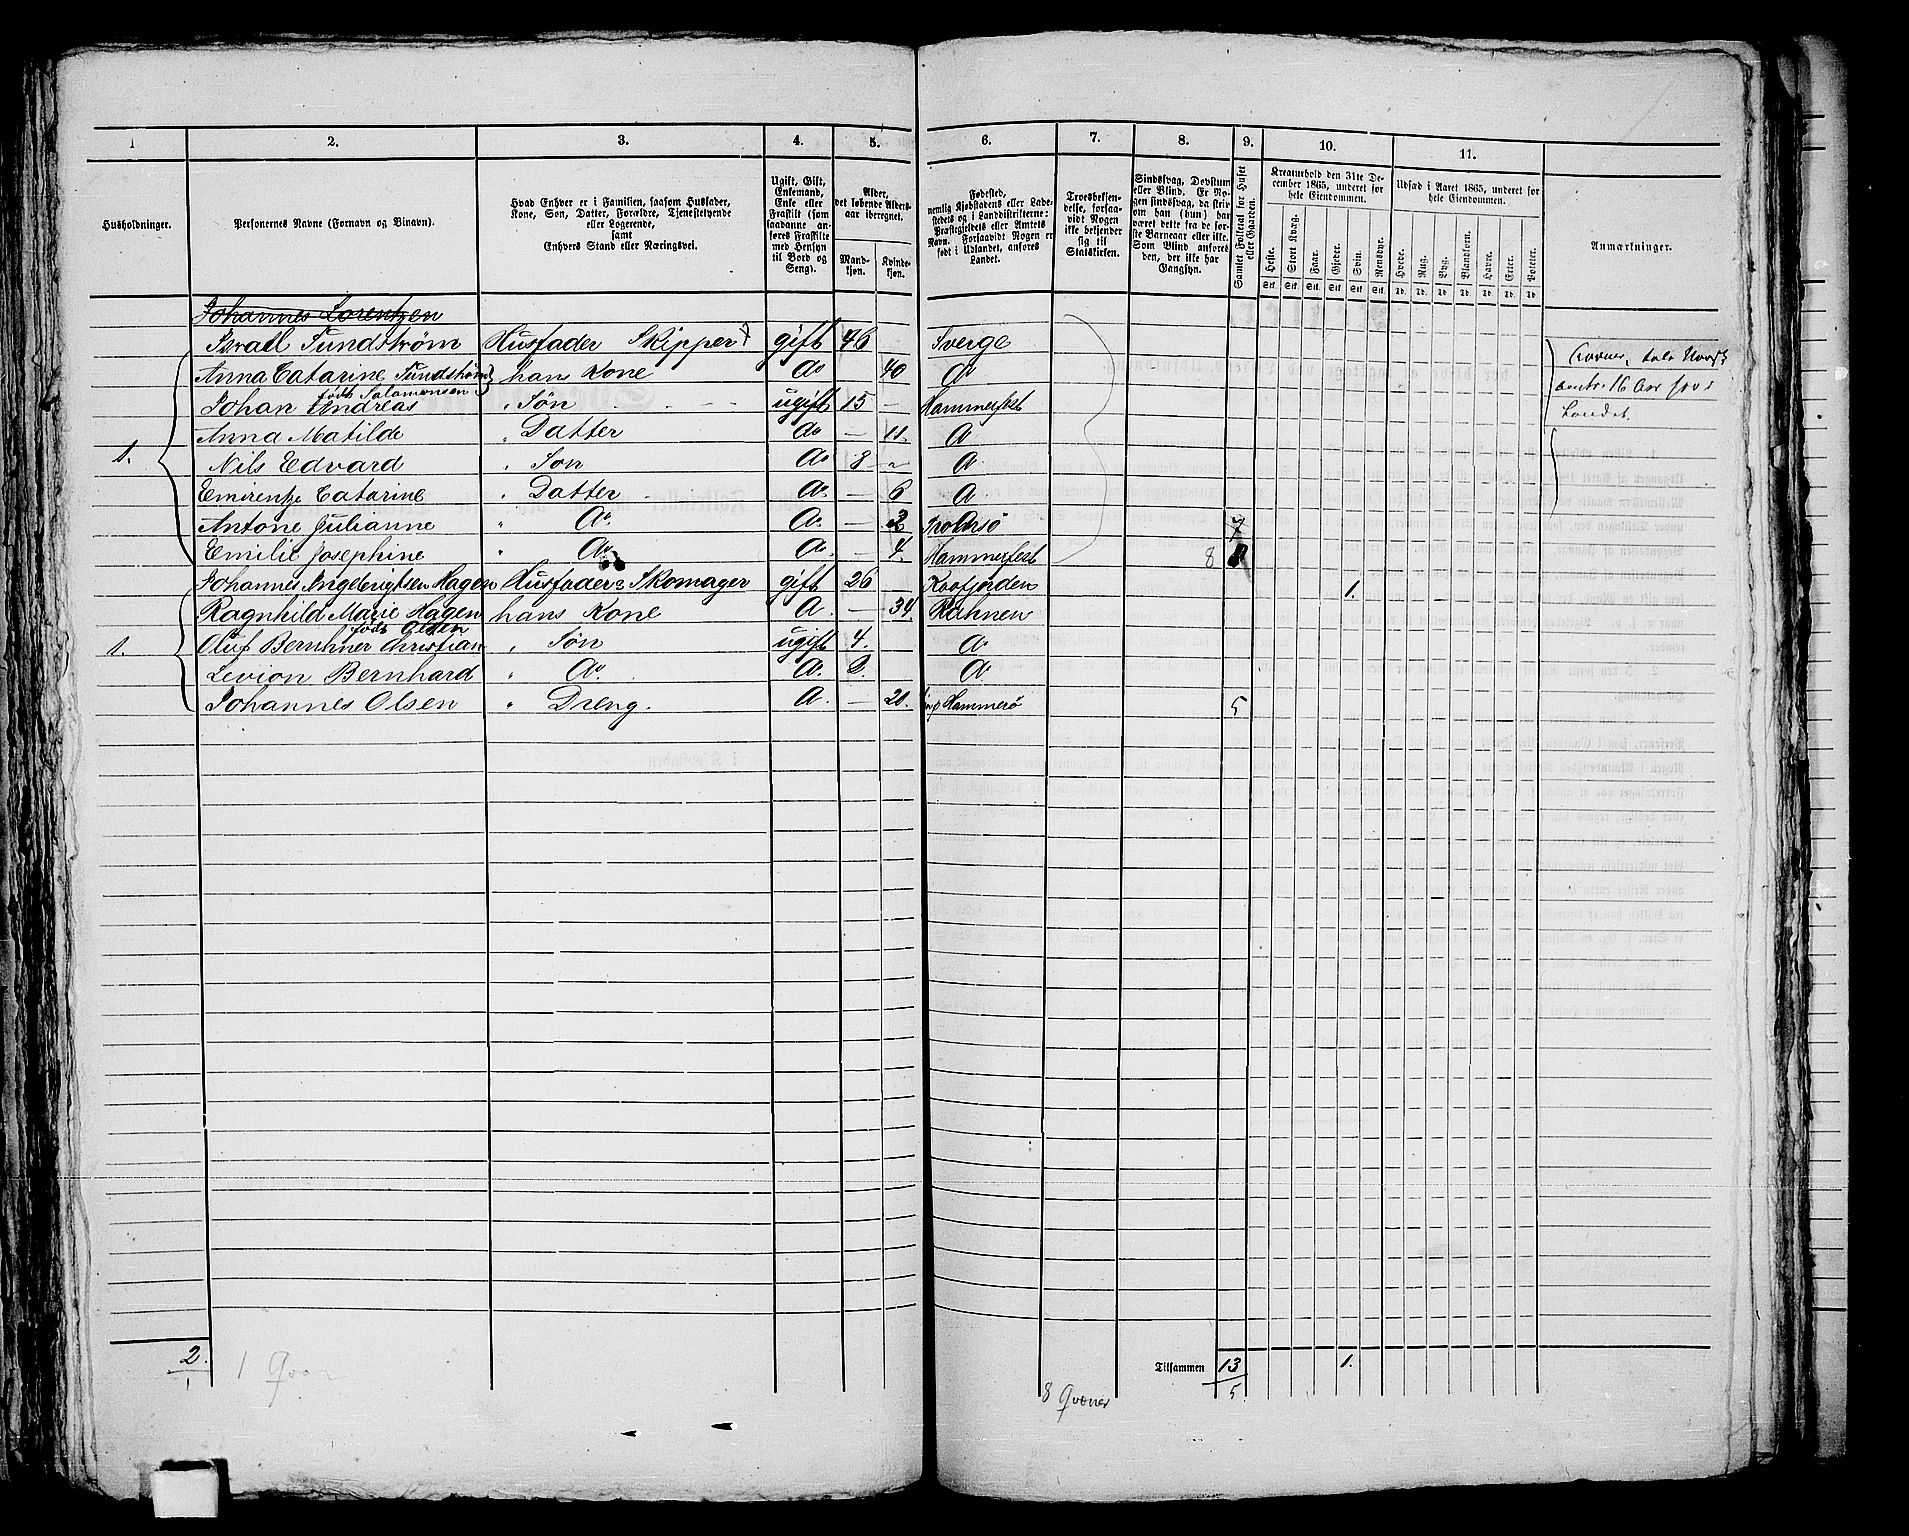 1 2. 3. 4. 5. 6. 7. 8. 9. 10. 11.
Husholdninger.
Personernes Navne (Fornavn og Binavn).
Hvad Enhver er i Familien, saasom Husfader,
Kone, Søn, Datter, Forældre, Tjenestetyende
eller Logerende,
samt
Enhvers Stand eller Næringsvei.
Ugift, Gift,
Enkemand,
Enke eller
Fraskilt (som
saadanne an-
føres Fraskilte
med Hensyn
til Bord og
Seng).
Alder,
det løbende Alders-
aar iberegnet.
Mand-
kjøn.
Kvinde-
kjøn.
Fødested,
nemlig Kjøbstadens eller Lade-
stedets og i Landdistrikterne:
Præstegjeldets eller Amtets
Navn. Forsaavidt Nogen er
født i Udlandet, anføres
Landet.
Troesbekjen-
delse, forsaa-
vidt Nogen
ikke bekjender
sig til
Statskirken.
Sindssvag, Døvstum
eller Blind. Er No-
gen sindssvag, da skriv
om han (hun) har
været dette fra de før-
ste Barneaar eller ikke.
Som Blind anføres
den, der ikke har
Gangsyn.
Samlet Folketal for Huset
eller Gaarden.
Kreaturhold den 31te De-
cember 1865, underet for
hele Eiendommen.
Heste. Stort Kvæg. Faar. Gjeder. Svin. Rensdyr.
Stk. Stk. Stk. Stk. Stk. Stk.
Udsæd i Aaret 1865, underet for
hele Eiendommen.
Hvede. Rug. Byg. Blandkorn. Havre. Erter. Poteter.
Td. Td. Td. Td. Td. Td. Td.
Anmærkninger.
Johannes Lorentzen
Israel Sundstrøm Husfader Skipper gift 46 Sverge
Anna Catarine Sundstrøm hans Kone do 40 do
født Salomonsen
Johan Andreas " Søn ugift 15 — Hammerfest
Anna Matilde " Datter do — 11. do
1. Nils Edvard " Søn do 8 do
Emirentze Catarine " Datter do — 6 do
Antone Julianne " do. do. — 2 Tromsø 7
Emilie Josephine " do do. — 4. Hammerfest 8
Johannes Ingebrigtsen Hagen Husfader Skomager gift 26 Kaafjorden 1.
Ragnhild Marie Hagen hans Kone do — 34 Ranen
født Olsen
1. Oluf Bernhner Christian " Søn ugift 4. do
Levion Bernhard " do. do. 2. do
Johannes Olsen " Dreng. do. — 20. Hammerø 5
aentr. 16 Aar her i
Landet.
2.
1
1 Qvæn
Tilsammen 13 1.
5
8 Qvæner